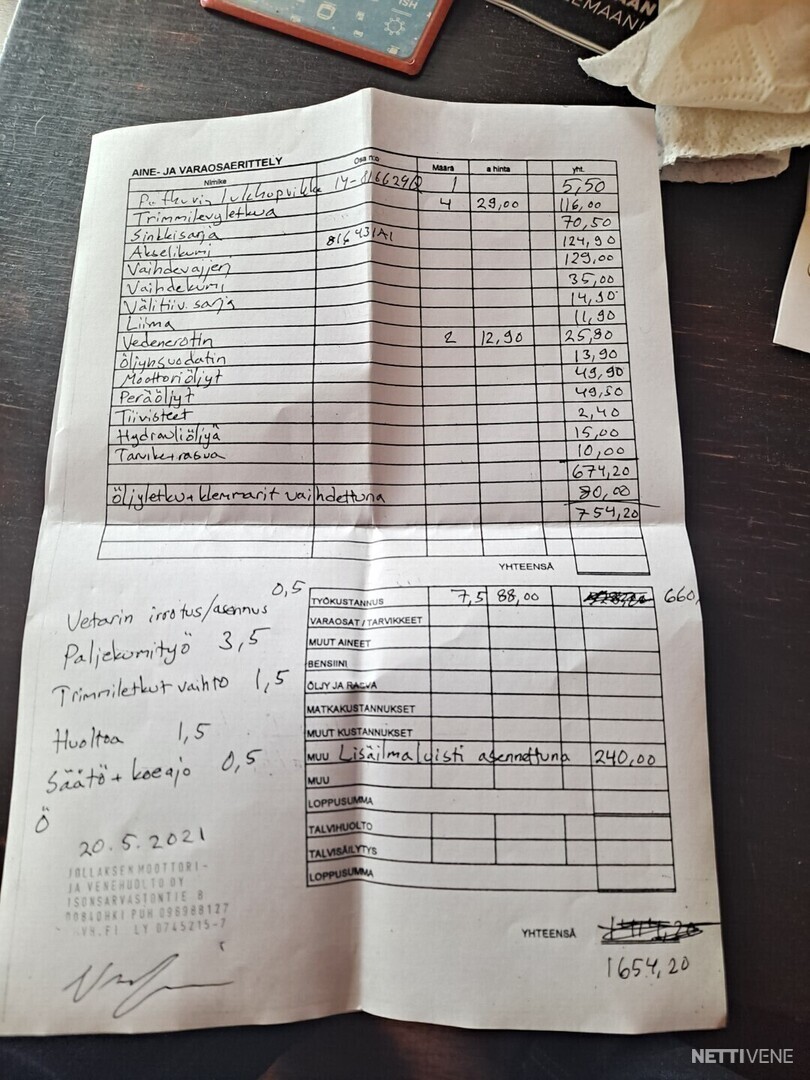 AINE- JA VARAOSAERITTELY
Nimike Osa n:o Määrä a hinta yht.
14-816629Q 1 5,50
Trimmilevyletkua 4 29,00 116,00
Sinkkisarja 70,50
Akselikumi 816431A1 124,90
Vaihdevajjeri 129,00
Vaihdekumi 35,00
Välitiiv. sarja 14,90
Liima 11,90
Vedenerotin 2 12,90 25,80
Öljynsuodatin 13,90
Moottoriöljyt 49,90
Peräöljyt 49,50
Tiivisteet 2,40
Hydrauliöljyä 15,00
Tarvike+rasva 10,00
674,20
Öljyletku+klemmarit vaihdettuna 80,00
754,20
YHTEENSÄ
Vetarin irrotus/asennus 0,5
Paljekumityö 3,5
Trimmiletkut vaihto 1,5
Huoltoa 1,5
Säätö + koeajo 0,5
Ö
20.5.2021
JOLLAKSEN MOOTTORI-
JA VENEHUOLTO OY
ISONSARVASTONTIE 8
00840HKI PUH 096988127
LY 0745215-7
TYÖKUSTANNUS 7,5 88,00 660,
VARAOSAT / TARVIKKEET
MUUT AINEET
BENSIINI
ÖLJY JA RASVA
MATKAKUSTANNUKSET
MUUT KUSTANNUKSET
MUU Lisäilmaluisti asennettuna 240,00
MUU
LOPPUSUMMA
TALVIHUOLTO
TALVISÄILYTYS
LOPPUSUMMA
YHTEENSÄ
1654,20
NETTIVENE